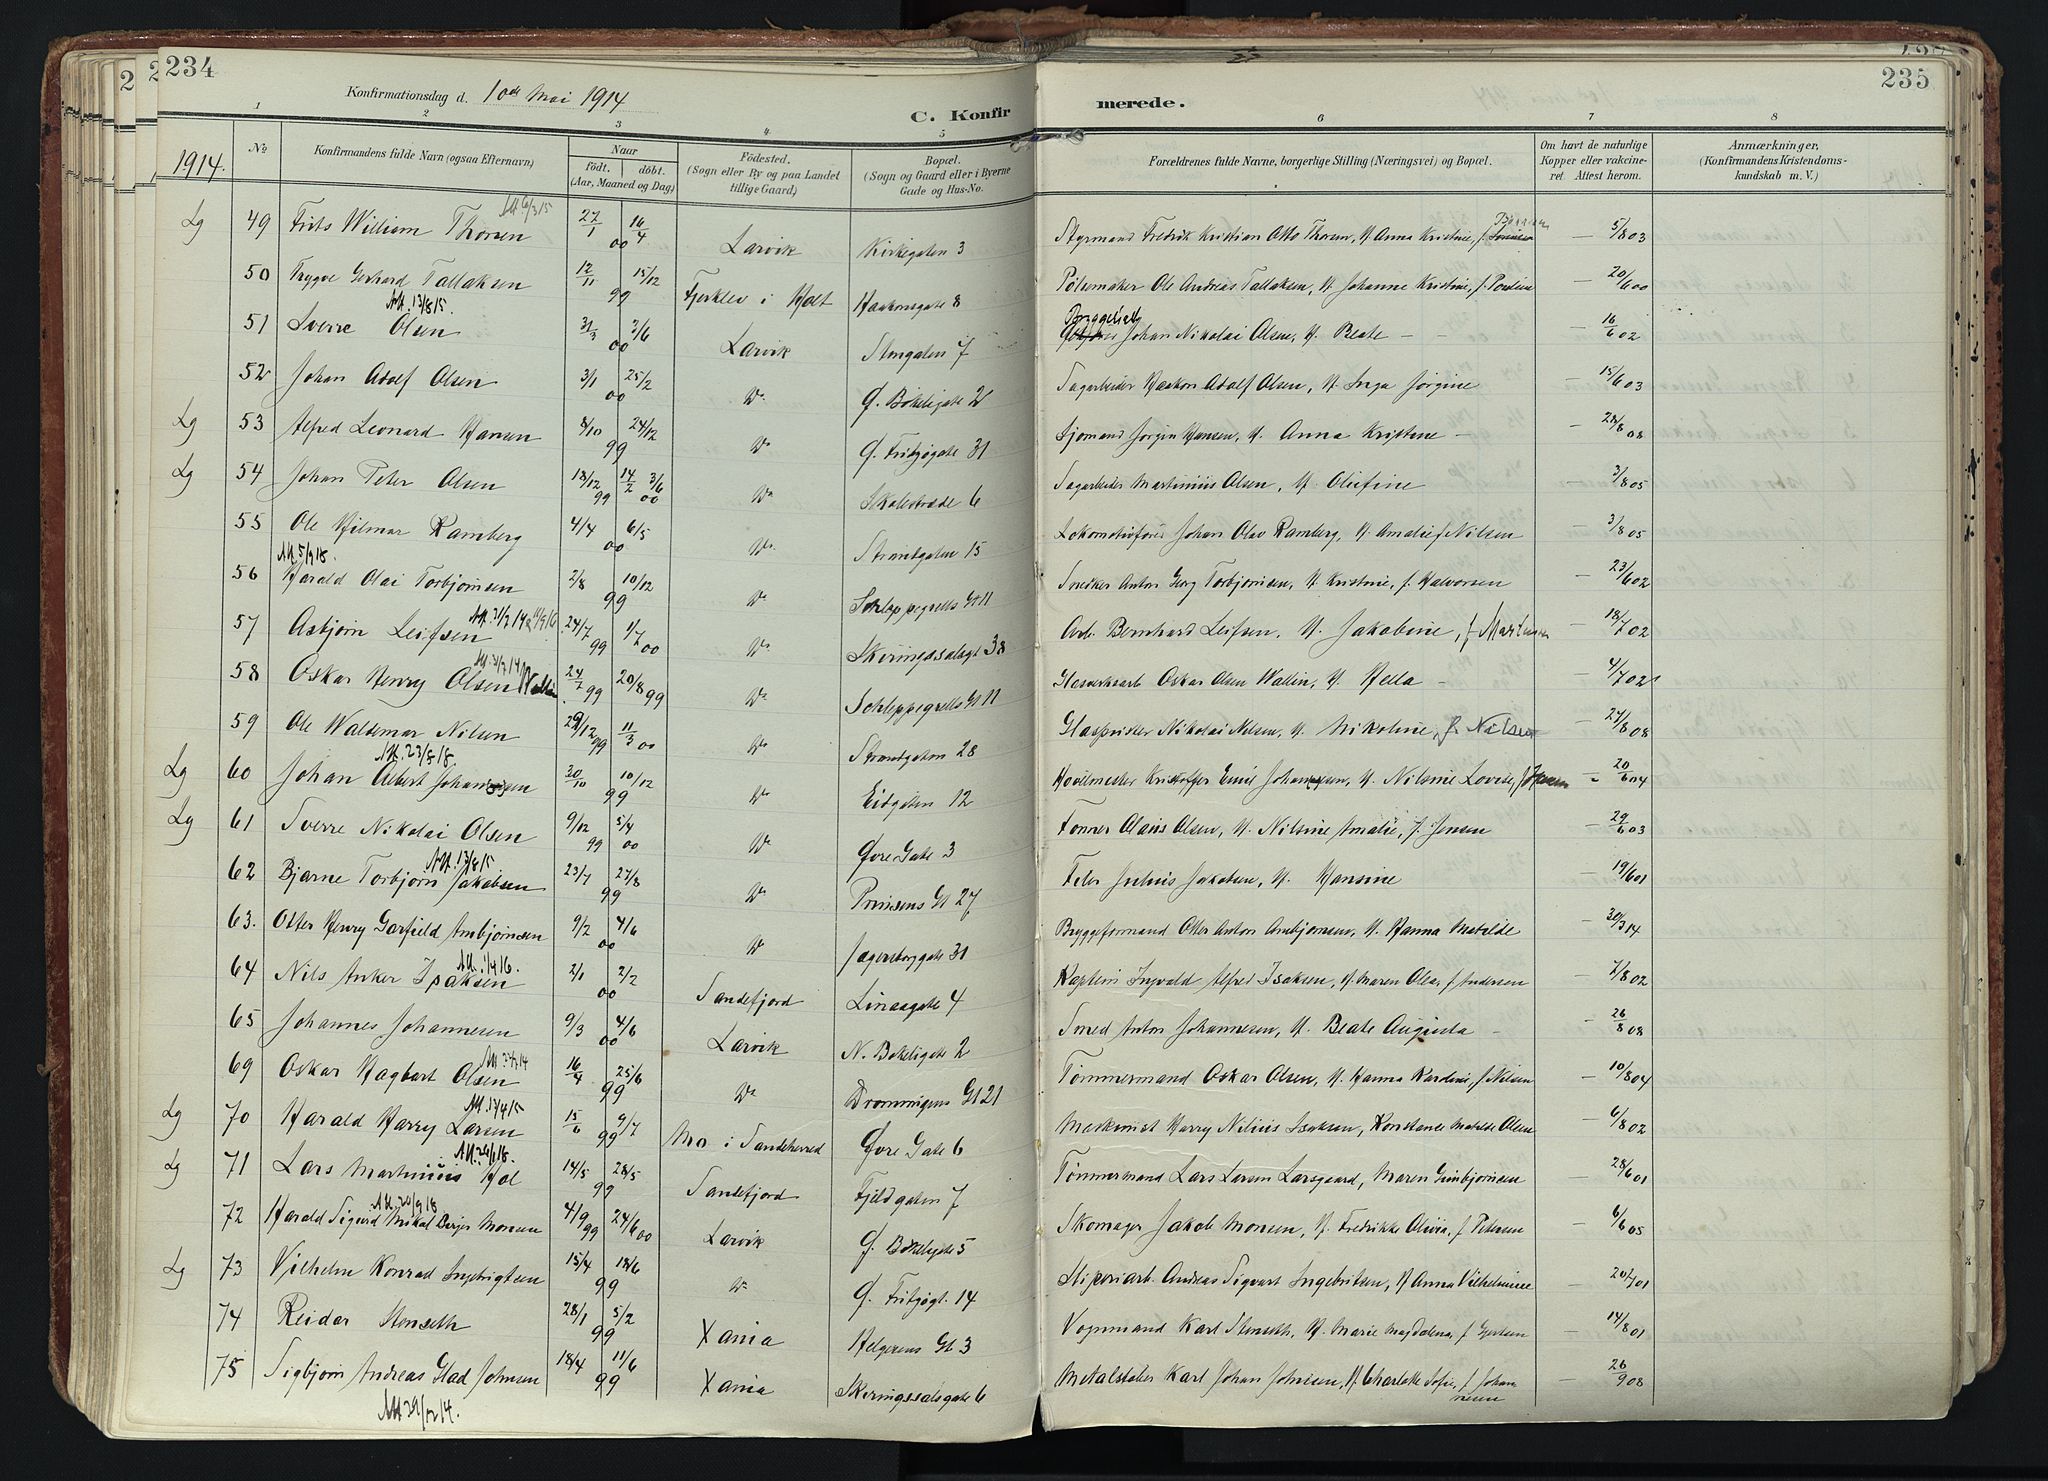 234
235
Konfirmationsdag d. 10de Mai 1914
C. Konfirmerede.
1 2 3 4 5 6 7 8
1914.
No.
Konfirmandens fulde Navn (ogsaa Efternavn)
Naar
født. døbt.
(Aar, Maaned og Dag)
Fødested.
(Sogn eller By og paa Landet tillige Gaard)
Bopæl.
(Sogn og Gaard eller i Byerne Gade og Hus-No.
Forældrenes fulde Navne, borgerlige Stilling (Næringsvei) og Bopæl.
Om havt de naturlige Kopper eller vakcineret. Attest herom.
Anmærkninger.
(Konfirmandens Kristendomskundskab m. V.)
Lg 49 Frits William Thorsen 27/1 00 16/4 Larvik Kirkegaten 3 Styrmand Fredrik Kristian Otto Thorsen, H. Anna Kristine, f. — 5/8 03
50 Trygve Gerhard Tallaksen 12/11 99 15/12 Fjerklev i Holt Haakonsgate 8 Pølsemaker Ole Andreas Tallaksen, H. Johanne Kristine, f. — 20/6 00
Att. 13/8 15.
51 Sverre Olsen 31/3 00 3/6 Larvik Stengaten 7 Johan Nikolai Olsen, H. Beate — — 16/6 02
52 Johan Adolf Olsen 3/1 00 25/2 Do Ø. Bøkeligate 2 Sagarbeider Haakon Adolf Olsen, H. Inga Jørgine — 15/6 03
Lg 53 Alfred Leonard Hansen 8/10 99 24/12 Do Ø. Fritzøgate 31 Sjømand Jørgen Hansen, H. Anna Kristine — — 28/8 08
Lg 54 Johan Peter Olsen 18/12 99 14/2 3/6 00 Do Skolestræde 6 Sagarbeider Martinius Olsen, H. Olufine — 3/8 05
55 Ole Hilmar Ramberg 4/4 00 6/5 Do Strandgaten 15 Lokomotivfører Johan Olav Ramberg, H. Amalie f. Nilsen — 3/8 05
Att. 5/9 18.
56 Harald Olai Torbjørnsen 2/8 99 10/12 Do Schleppegrells Gt 11 Snedker Anton Georg Torbjørnsen, H. Kristine, f. Halvorsen — 23/6 02
57 Asbjørn Leifsen 24/7 99 1/7 00 Do Skiringssalsgt 38 Arb. Bernhard Leifsen, H. Jakobine, f. — 18/7 02
58 Oskar Henry Olsen Wallin 24/7 99 20/8 99 Do Schleppegrells Gt 11 Glasverksarb Oskar Olsen Wallin, H. Hella — — 4/7 02
59 Ole Waldemar Nilsen 29/12 99 11/3 00 Do Strandgaten 28 Glaspuster Nikolai Nilsen, H. Nikoline, f. Nilsen — 27/8 08
Att. 23/5 18.
Lg 60 Johan Albert Johansen 30/10 99 10/12 Do Eidgaten 12 Kristoffer Emil Johansen, H. Nilsine Lovise, f. — 20/6 04
Lg 61 Sverre Nikolai Olsen 9/12 99 5/4 00 Do Øvre Gate 3 Tomer Olaus Olsen, H. Nilsine Amalie, f. Jensen — 29/6 03
Att. 13/8 15
62 Bjarne Torbjørn Jakobsen 23/7 99 27/8 Do Prinsens Gt 27 Feier Julius Jakobsen, H. Hansine — 19/6 01
63. Otter Henry Garfield Ambjørnsen 9/2 00 4/6 Do Jagersborggate 31 Bryggeformand Otter Anton Ambjørnsen, H. Hanna Matilde — 30/3 14
64 Nils Anker Isaksen 2/1 00 2/2 Sandefjord Linaaegate 4 Kaptein Ingvald Alfred Isaksen, H. Maren Olea, f. Andersen — 7/8 02
65 Johannes Johannesen 9/3 00 4/6 Larvik N. Bøkeligate 2 Smed Anton Johannesen, H. Beate Augusta — — 26/8 08
69 Oskar Hagbart Olsen 16/4 99 25/6 Do Dronningens Gt 21 Tømmermand Oskar Olsen, H. Hanna Karoline, f. Nilsen — 10/8 04
Att. 17/4 15
Lg 70 Harald Harry Larsen 15/6 99 9/7 Mo i Sandeherred Øvre Gate 6 Maskinist Harry Nilius Isaksen, Konstanse Matilde Olsen — 6/8 02
Lg 71 Lars Martinius Hol 14/5 99 28/5 Sandefjord Fjeldgaten 7 Tømmermand Lars Larsen Larsgaard, Maren Gunbjørnsen — 28/6 01
Att. 20/9 18
72 Harald Sigurd Mikal Berger Monsen 4/9 99 24/6 00 Larvik Ø. Bøkeligate 5 Skomager Jakob Monsen, H. Fredrikke Olivia, f. Petersen — 6/6 05
Lg 73 Vilhelm Konrad Ingebrigtsen 15/4 99 18/6 Do Ø. Fritzøgt. 14 Sliperiarb. Andreas Sigvart Ingebritsen, H. Anna Vilhelmine — 20/7 01
74 Reidar Stenseth 28/1 99 5/2 Xania Helgesens Gt 3 Vognmand Karl Stenseth, H. Marie Magdalena, f. — 14/8 01
75 Sigbjørn Andreas Glad Johnsen 18/4 99 11/6 Xania Skiringssalsgate 6 Metalstøber Karl Johan Johnsen, H. Charlotte Sofie, f. Johannesen — 26/9 08
Att 29/12 14.